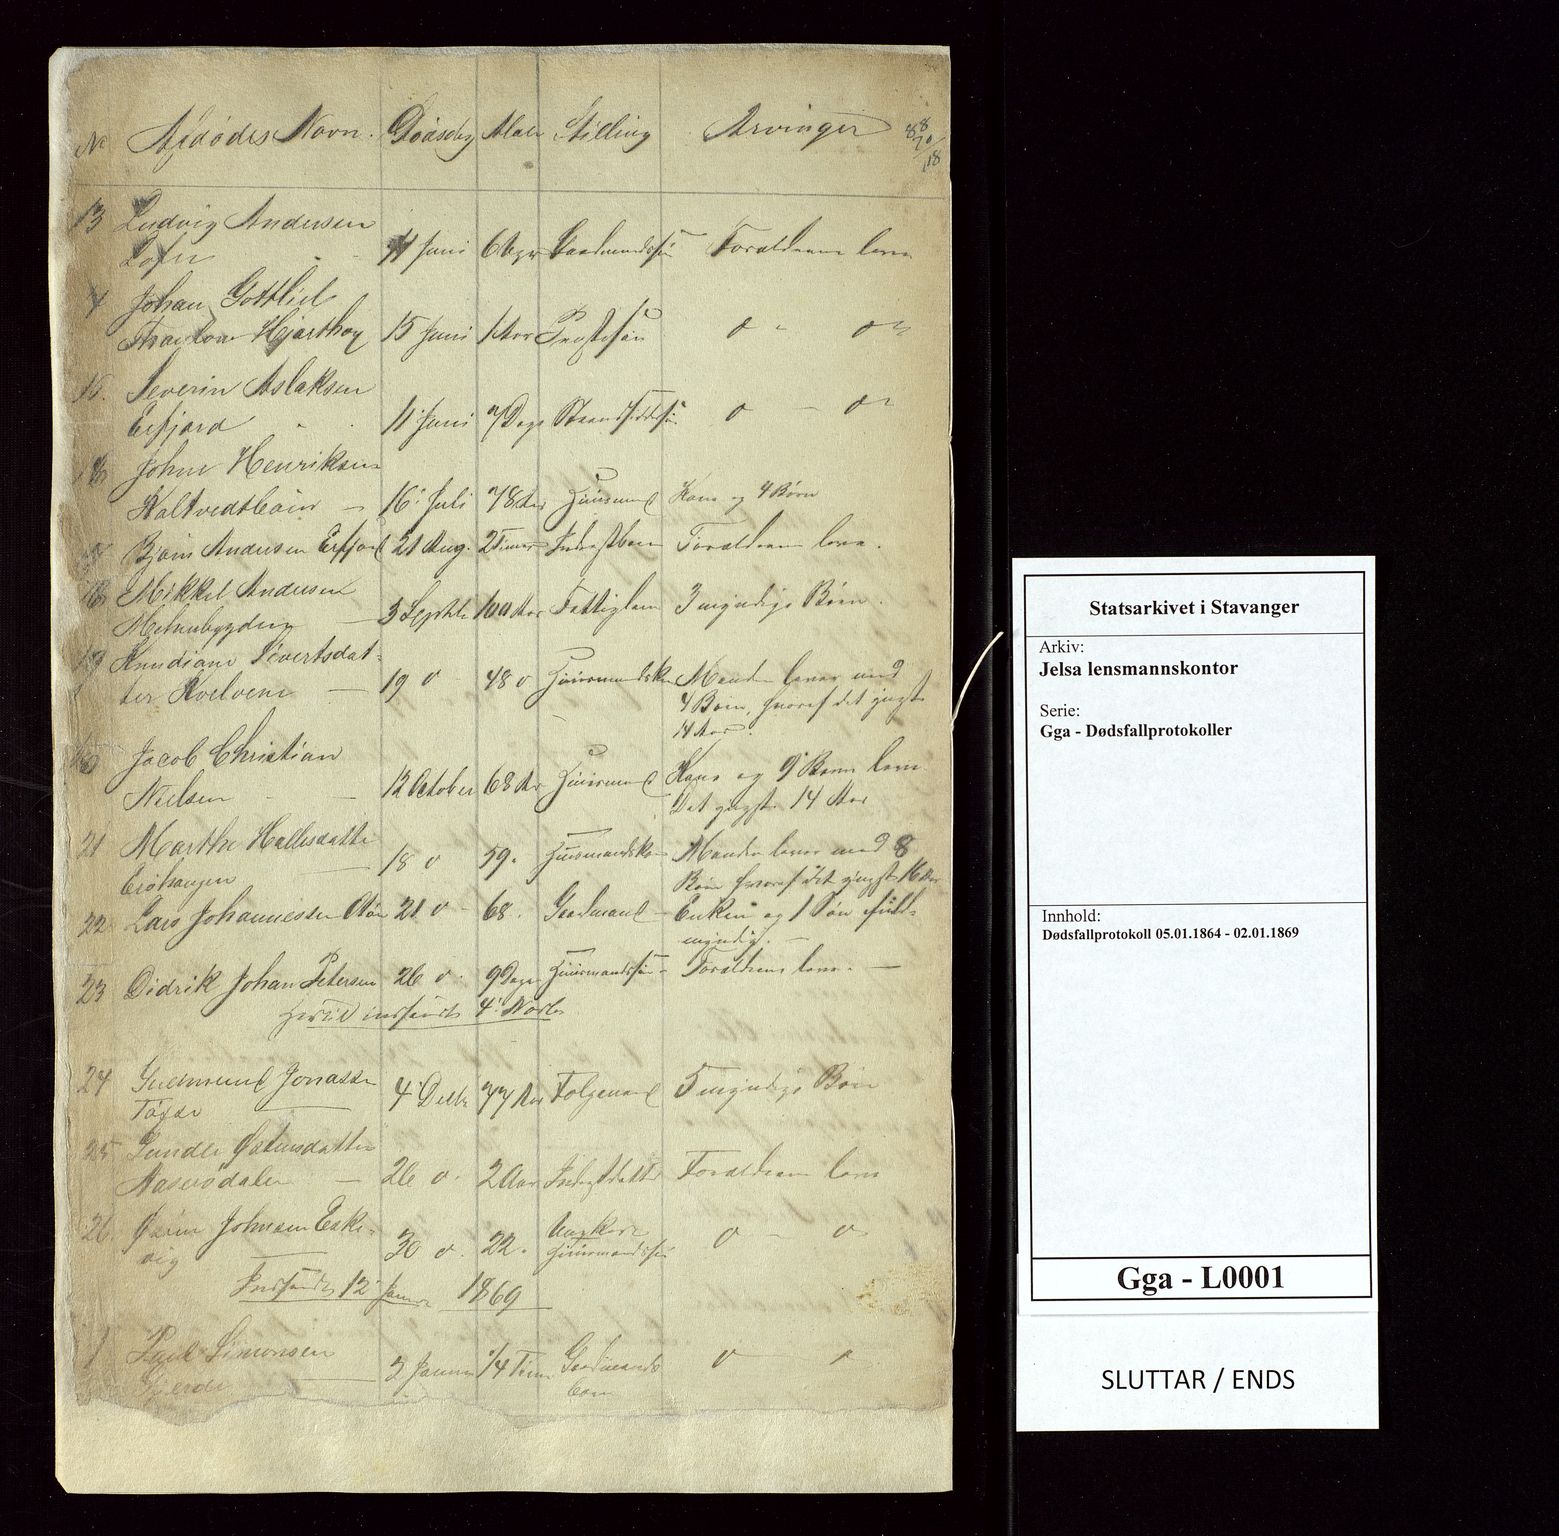 No Afdødes Navn. Dødsdag Alder Stilling Arvinger
13 Ludvig Andersen
Lofn 11 Juni 6 Ager Gaardmandssøn Forældrene leve
Johan Gottlieb
Hjorthoy 15 Juni 1 Aar Prestesøn o - o
15. Severin Aslaksen
Erfjord 11 Juni 7 Dage Strandsiddersøn o - o
16 Johne Henriksen
Haltvedtbøin - 16 Juli 78 Aar Huusmand Kone og 4 Børn
17 Bjørn Andersen Erfjord 21 Aug. 2 Timer Inderstbarn Forældrene leve.
18 Mikkel Andersen
3 Septbr 100 Aar Fattiglem 3 myndige Børn.
19 Knudiane Sivertsdat-
ter Kvelvene - 19 o 48 o Huusmandsk. Manden lever med
4 Børn, hvoraf det yngste
14 Aar.
20 Jacob Christian
Nielsen - 12 October 68 Aar Huusmand Kone og 9 Børn leve
Det yngste 14 Aar
21 Marthe Hallesdatter
Erøhaugen 18 o 59. Huusmandskone Manden lever med 8
Børn hvoraf det yngste 16 Aar
22 Lars Johannessen 21 o 68. Gaardmand - Enken og 1 Søn fuld-
myndig. -
23 Didrik Johan Petersen 26 o 9 Dage Huusmandssøn - Forældrene leve. -
Hertil indsendt 4 Novbr
24 Gudmund Jonassen
Tøgje 4 Decbr 77 Aar Folgemand 5 myndige Børn
25 Gundle Østensdatter
- 26 o. 2 Aar Inderstdatter Forældrene leve
26. Johnsen Eske-
vig 30 o. 22. Ungkarl
Huusmandssøn o - o
Indsendt 12 Januar 1869
1 Paul Simonsen
Gjerde 2 Januar 1/4 Time Gaardmands
barn o "
88
70/18
Statsarkivet i Stavanger
Arkiv:
Jelsa lensmannskontor
Serie:
Gga - Dødsfallprotokoller
Innhold:
Dødsfallprotokoll 05.01.1864 - 02.01.1869
Gga - L0001
SLUTTAR / ENDS